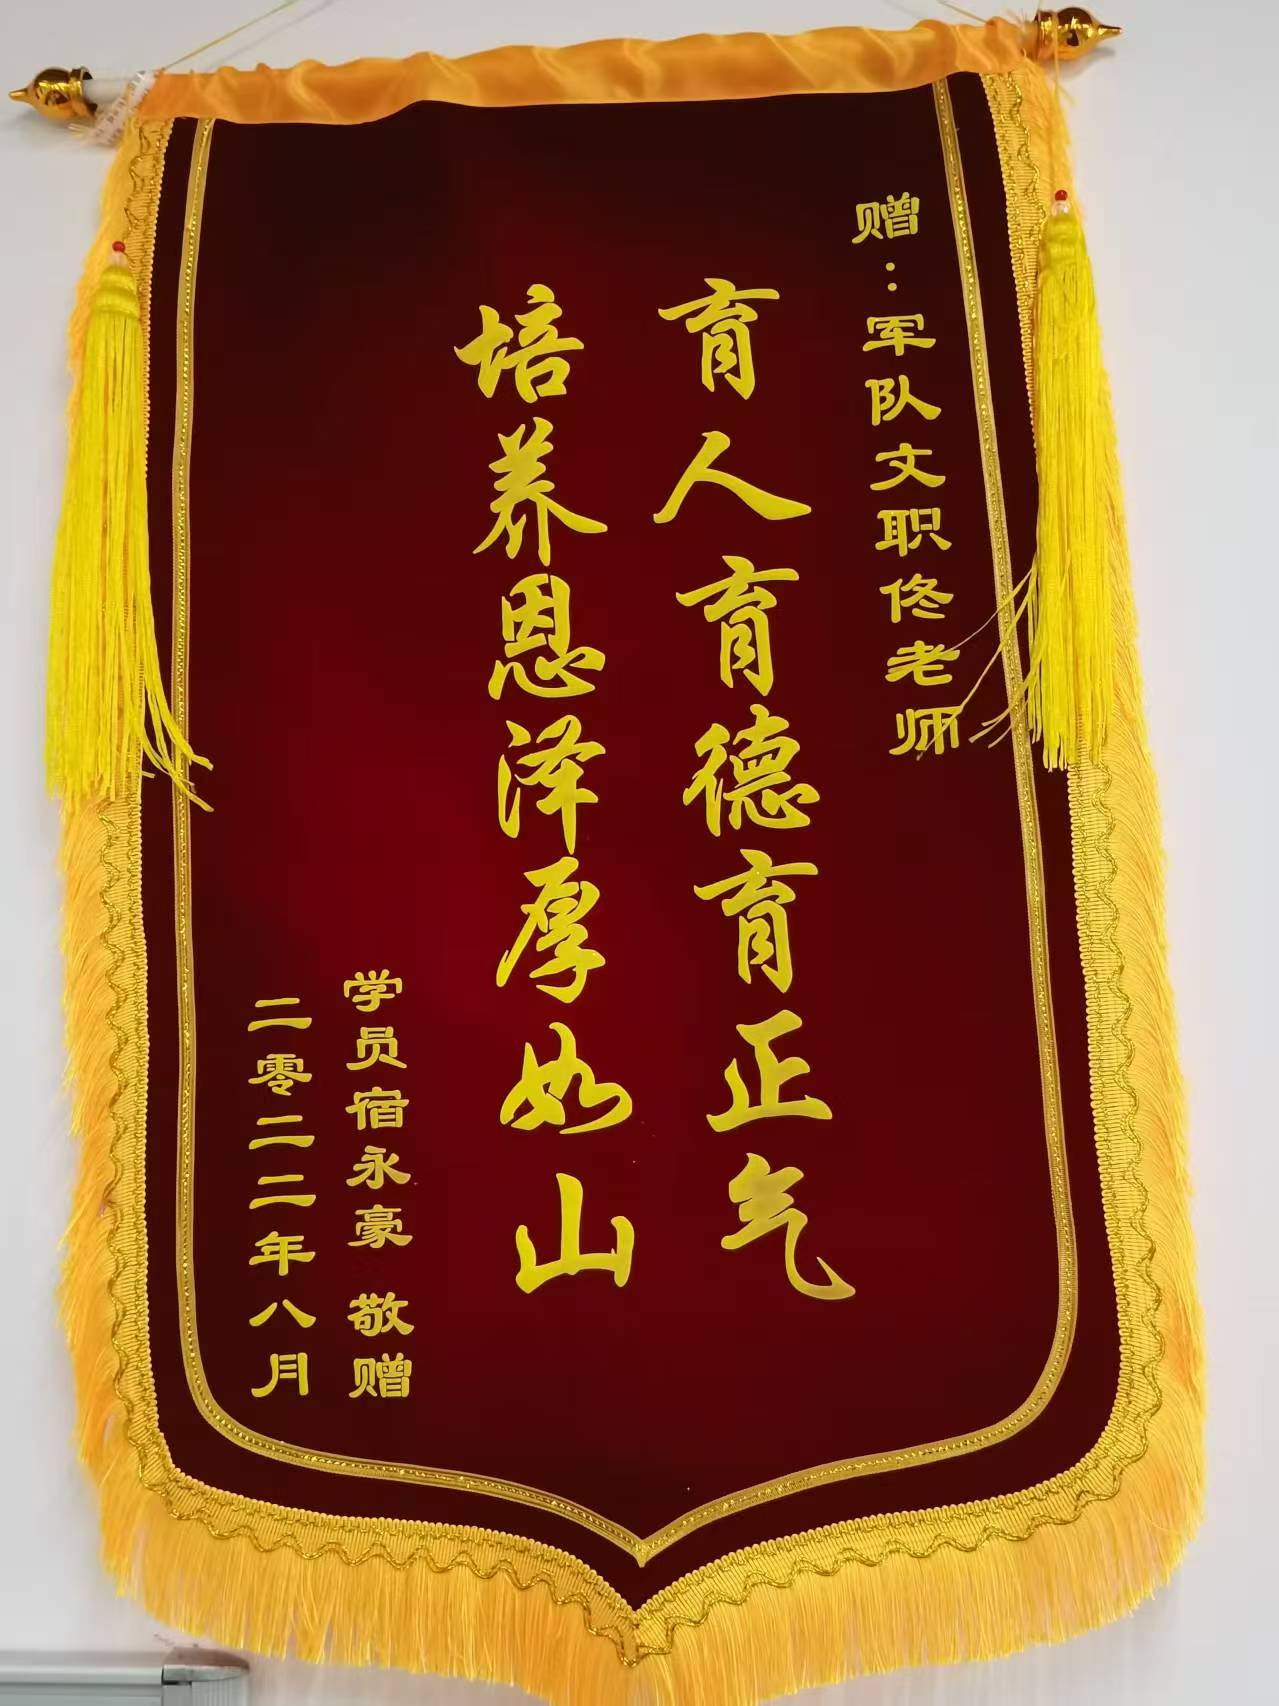 赠：军队文职佟老师
育人育德育正气
培养恩泽厚如山
学员宿永豪 敬赠
二零二二年八月